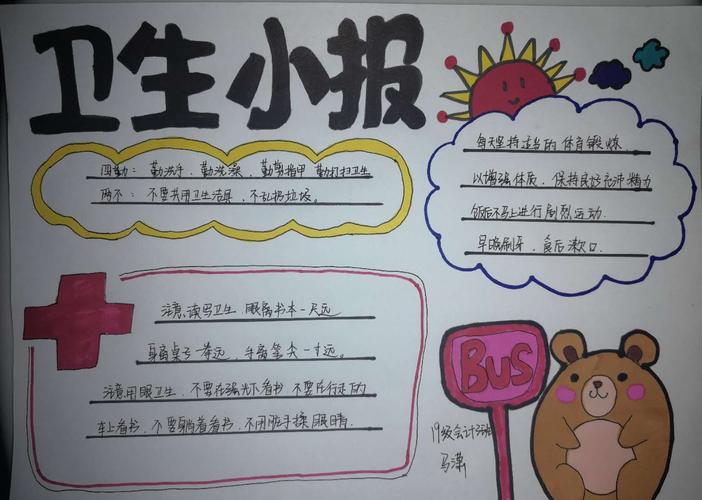 卫生小报
四勤：勤洗手，勤洗澡，勤剪指甲 勤打扫卫生
两不：不要共用卫生洁具，不乱扔垃圾。
每天坚持适当的体育锻炼
以增强体质，保持良好充沛精力
饭后不马上进行剧烈运动.
早晚刷牙，食后漱口.
注意读写卫生，眼离书本一尺远
身离桌子一拳远，手离笔尖一寸远。
注意用眼卫生，不要在强光下看书 不要在行走的
车上看书，不要躺着看书，不用脏手揉眼睛.
BUS
19级会计
马潇